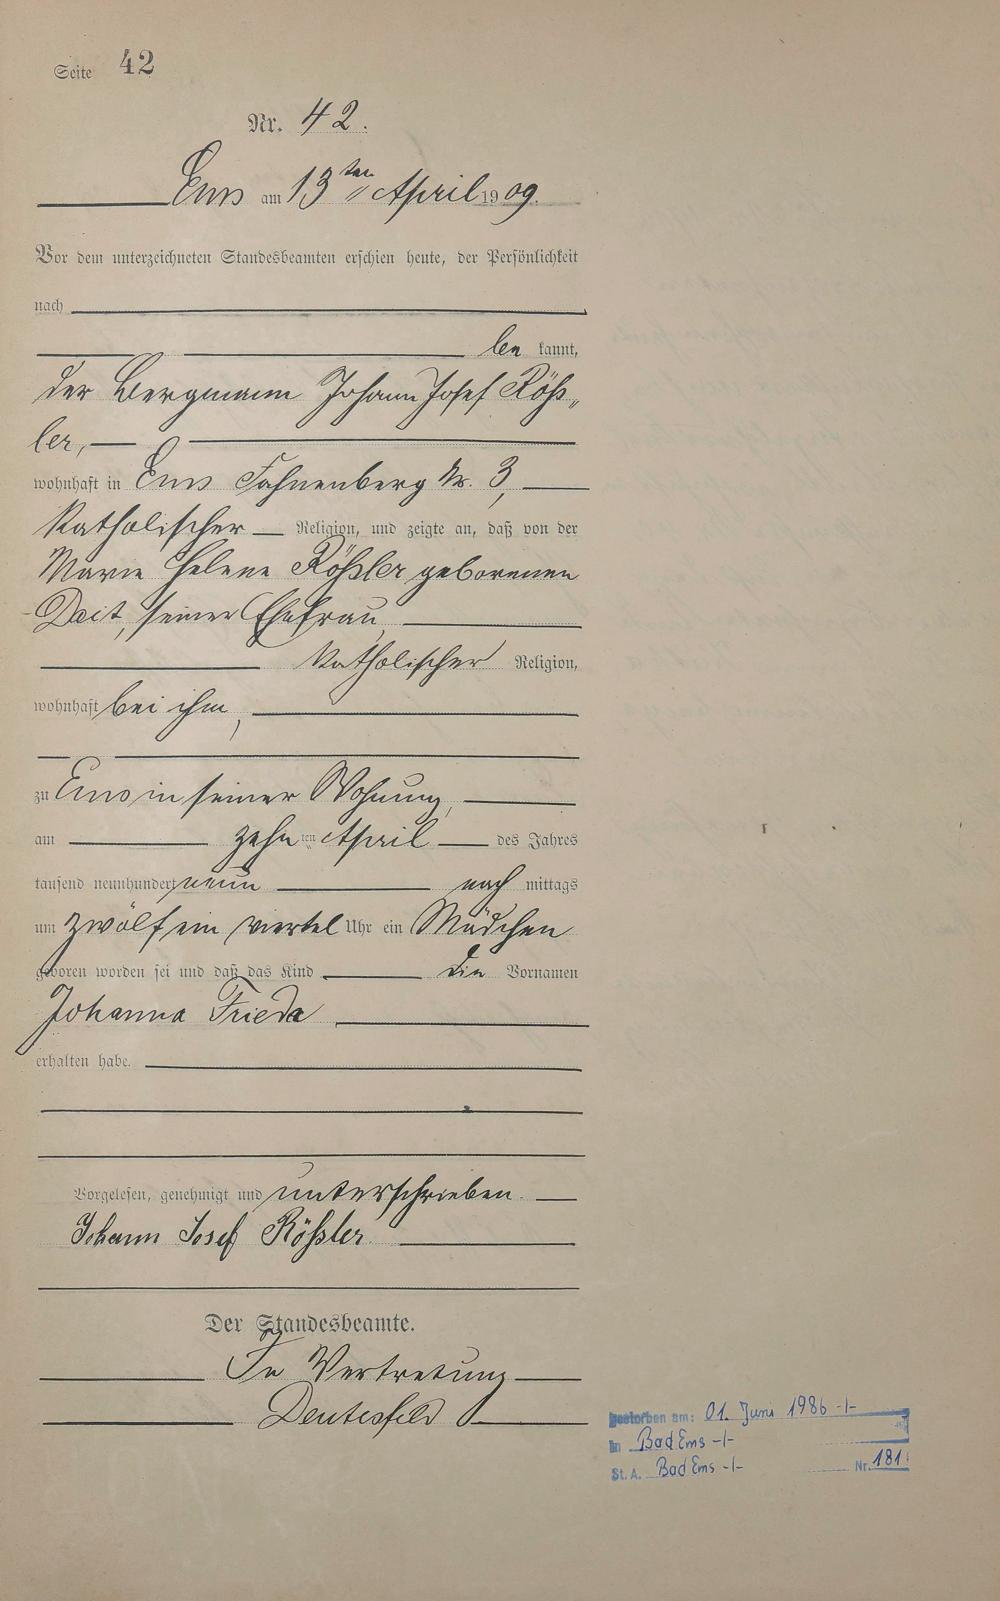 Seite 42
Nr. 42.
Ems am 13ten April 1909.
Vor dem unterzeichneten Standesbeamten erschien heute, der Persönlichkeit
nach
be kannt,
der Bergmann Johann Josef Röß„
ler,
wohnhaft in Ems Fahnenberg Nr. 3,
katholischer Religion, und zeigte an, daß von der
Marie Helene Rößler geborenen
Deit, seiner Ehefrau
katholischer Religion,
wohnhaft bei ihm,
zu Ems in seiner Wohnung,
am zehnten April des Jahres
tausend neunhundert neun nach mittags
um zwölf ein viertel Uhr ein Mädchen
geboren worden sei und daß das Kind die Vornamen
Johanna Frieda
erhalten habe.
Vorgelesen, genehmigt und unterschrieben.
Johann Josef Rößler.
Der Standesbeamte.
In Vertretung
Deutesfeld
gestorben am: 01. Juni 1986 -/-
in Bad Ems -/-
St. A. Bad Ems -/- Nr. 181